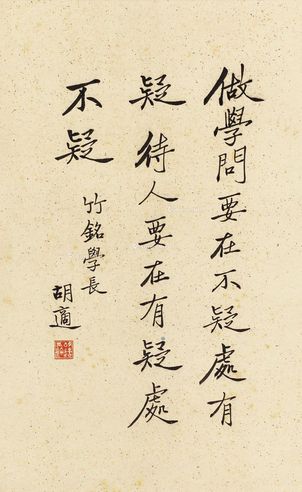 做學問要在不疑處有
疑待人要在有疑處
不疑
竹銘學長
胡適